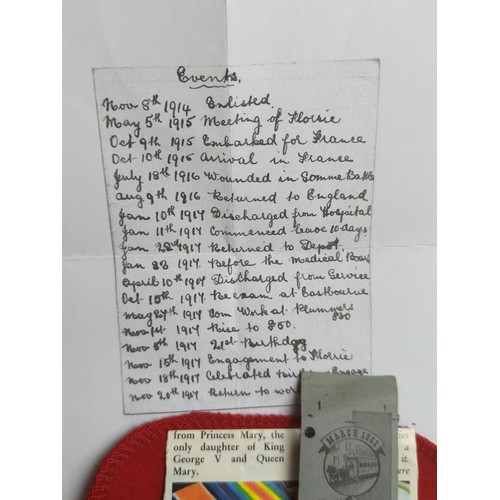 Events.
Nov 8th 1914 Enlisted.
May 5th 1915 Meeting of Florrie
Oct 9th 1915 Embarked for France
Oct 10th 1915 Arrival in France
July 18th 1916 Wounded in Somme
Aug 9th 1916 Returned to England
Jan 10th 1917 Discharged from Hospital
Jan 11th 1917 Commenced leave 10 days
Jan 22nd 1917 Returned to Depot.
Jan 23 1917 Before the Medical Board
April 10th 1917 Discharged from Service
Oct 10th 1917 Re exam at Eastbourne
May 27th 1917 Com Work at Plummers
Nov 1st 1917 Rise to
Nov 8th 1917 21st Birthday
Nov 15th 1917 Engagement to Florrie
Nov 18th 1917 Celebrated
Nov 20th 1917 Return to
1 1
MARCH
from Princess Mary, the
only daughter of King a
George V and Queen it.
Mary. ere